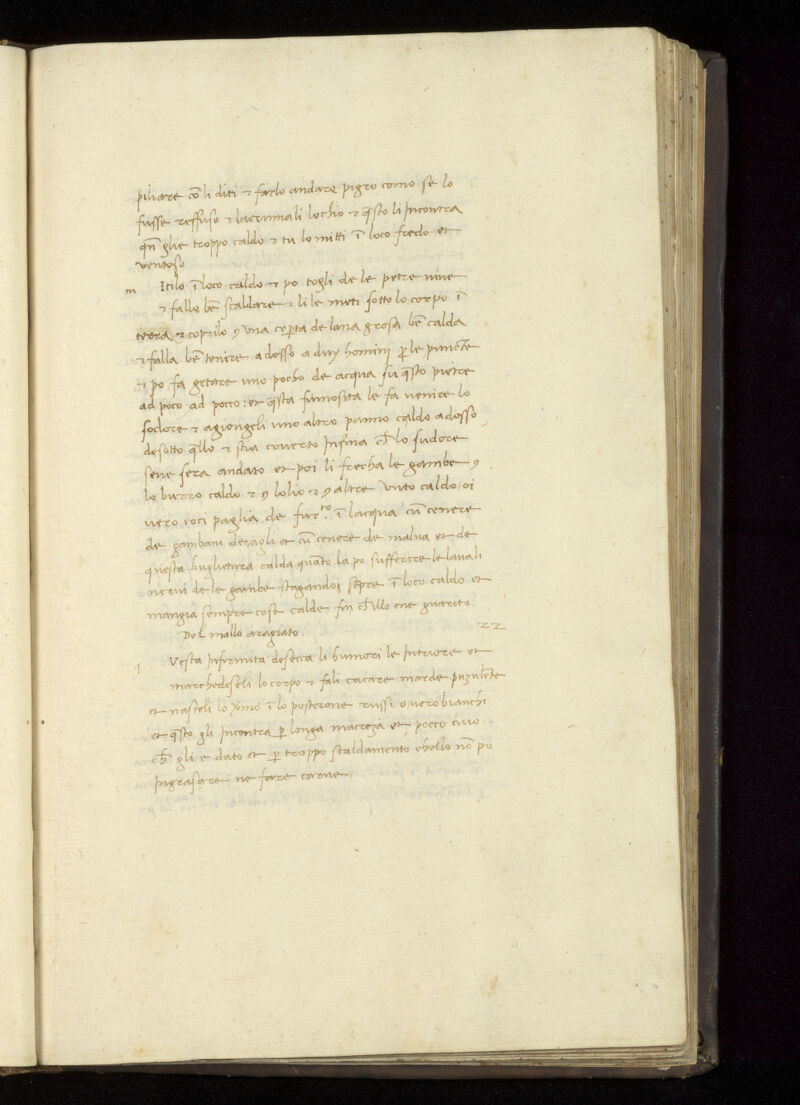 piliare cō li diti ⁊ farlo andare pigro como se lo
fusse reffuso ⁊ lacrimali lochio ⁊ q̄sto li Incontra
qn̄ glie troppo caldo ⁊ tu lo mitti ī loco fredo et
ventoso
m Itilo ī loco caldo ⁊ po togli de le petre viue
⁊ falle bē scaldare ⁊ li le meti sotto lo corpo ī
terra ⁊ coprilo y vna coperta de lana grosa bē calda
⁊ falla bē tenire adosso a duy homini p̄ le puncte
⁊ po fa getare uno pocho de acqua su q̄sto pietre
ad poco ad pocco: et q̄sta fumosita le fa venire lo
sodore ⁊ agiongeli uno altro panno caldo adosso
desotto q̄llo ⁊ stia coverto Insina ch̄ lo sudore
sene sera andato et poi li frecha le gambe y
lo burro caldo ⁊ y lolio ⁊ y altre Unto caldo / oi
vero coci paglia de fur.to ī lacqua cū cenere
de gambani de zagli et cū cenere de malua et de
questa buglietura calda quāto la po sufferire le lauali
nerui de le gambe stagando sēpre ī loco caldo et
mangia sempre cose calde fin ch̄ illo ene guarito
Del mallo aragiato: 22
q Vesta Infirmita deseca li humori le Interiore et
marchedeseli lo corpo ⁊ fali cacare marde puzulēte
et nasceli lo ī lo posterone russi o/vero bianchi
et q̄sto gli Incontra p̄ longa macreza et pocco civo
ch̄ gli e dato et p̄ troppo scaldamento chello nō po
Ingrasare ne fare carne